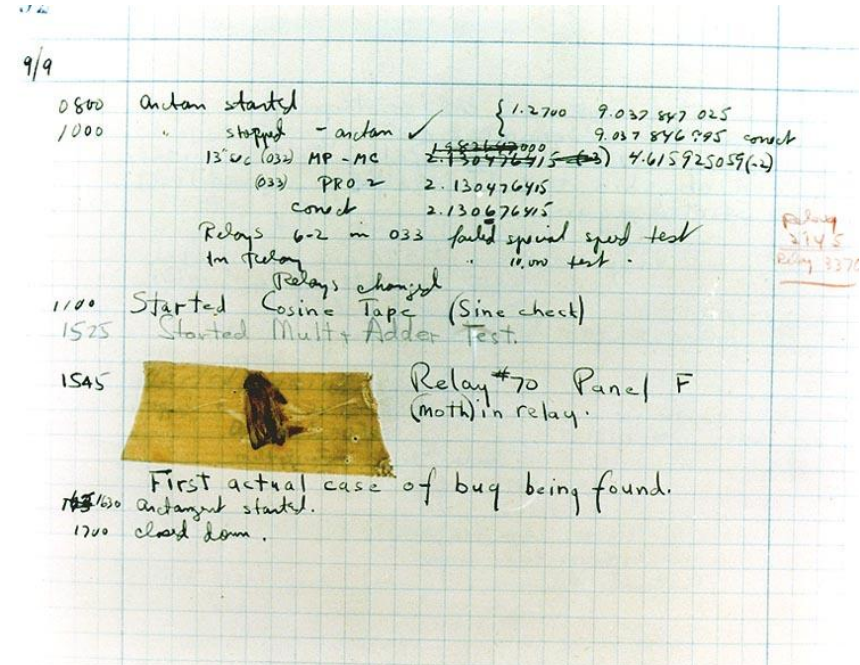 9/9
0800 antan started { 1.2700 9.037 847 025
1000 " stopped - antan ✓ 9.037 846 995 conect
13"uc (032) MP - MC 2.130476415 (-3) 4.615925059(-2)
(033) PRO 2 2.130476415
conect 2.130676415
Relays 6-2 in 033 failed special speed test
In Relay " 10,000 test .
Relays changed
Relay
2145
Relay 3370
1100 Started Cosine Tape (Sine check)
1525 Started Mult + Adder Test.
1545 Relay #70 Panel F
(moth) in relay.
First actual case of bug being found.
1630 antangent started.
1700 closed down .